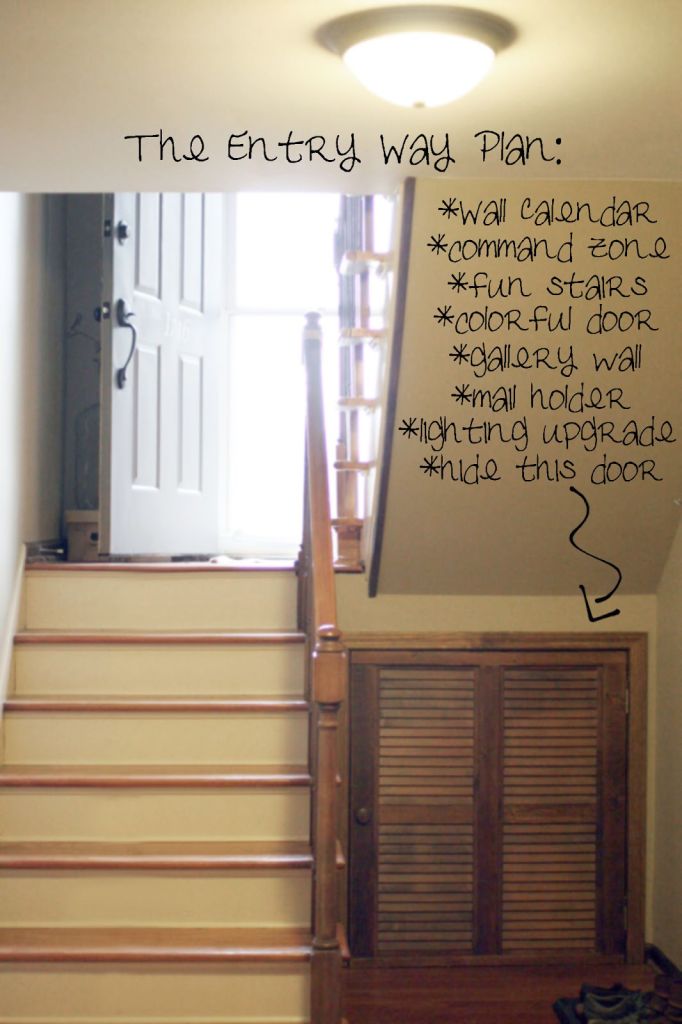 The Entry Way Plan:
*wall calendar
*command zone
*fun stairs
*colorful door
*gallery wall
*mail holder
*lighting upgrade
*hide this door